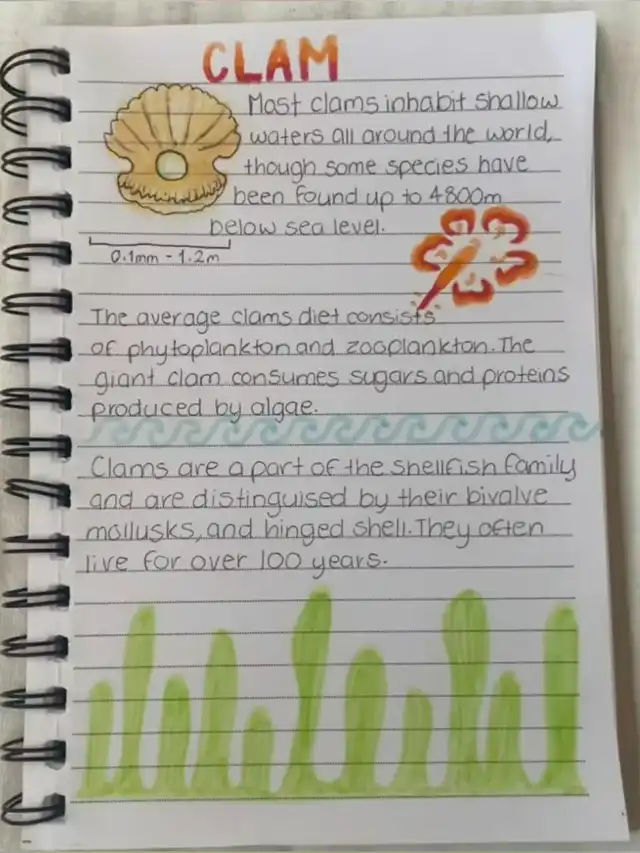 CLAM
Most clams inhabit shallow
waters all around the world,
though some species have
been found up to 4800m
below sea level.
0.1mm - 1.2m
The average clams diet consists
of phytoplankton and zooplankton. The
giant clam consumes sugars and proteins
produced by algae.
Clams are a part of the shellfish family
and are distinguised by their bivalve
mollusks, and hinged shell. They often
live for over 100 years.